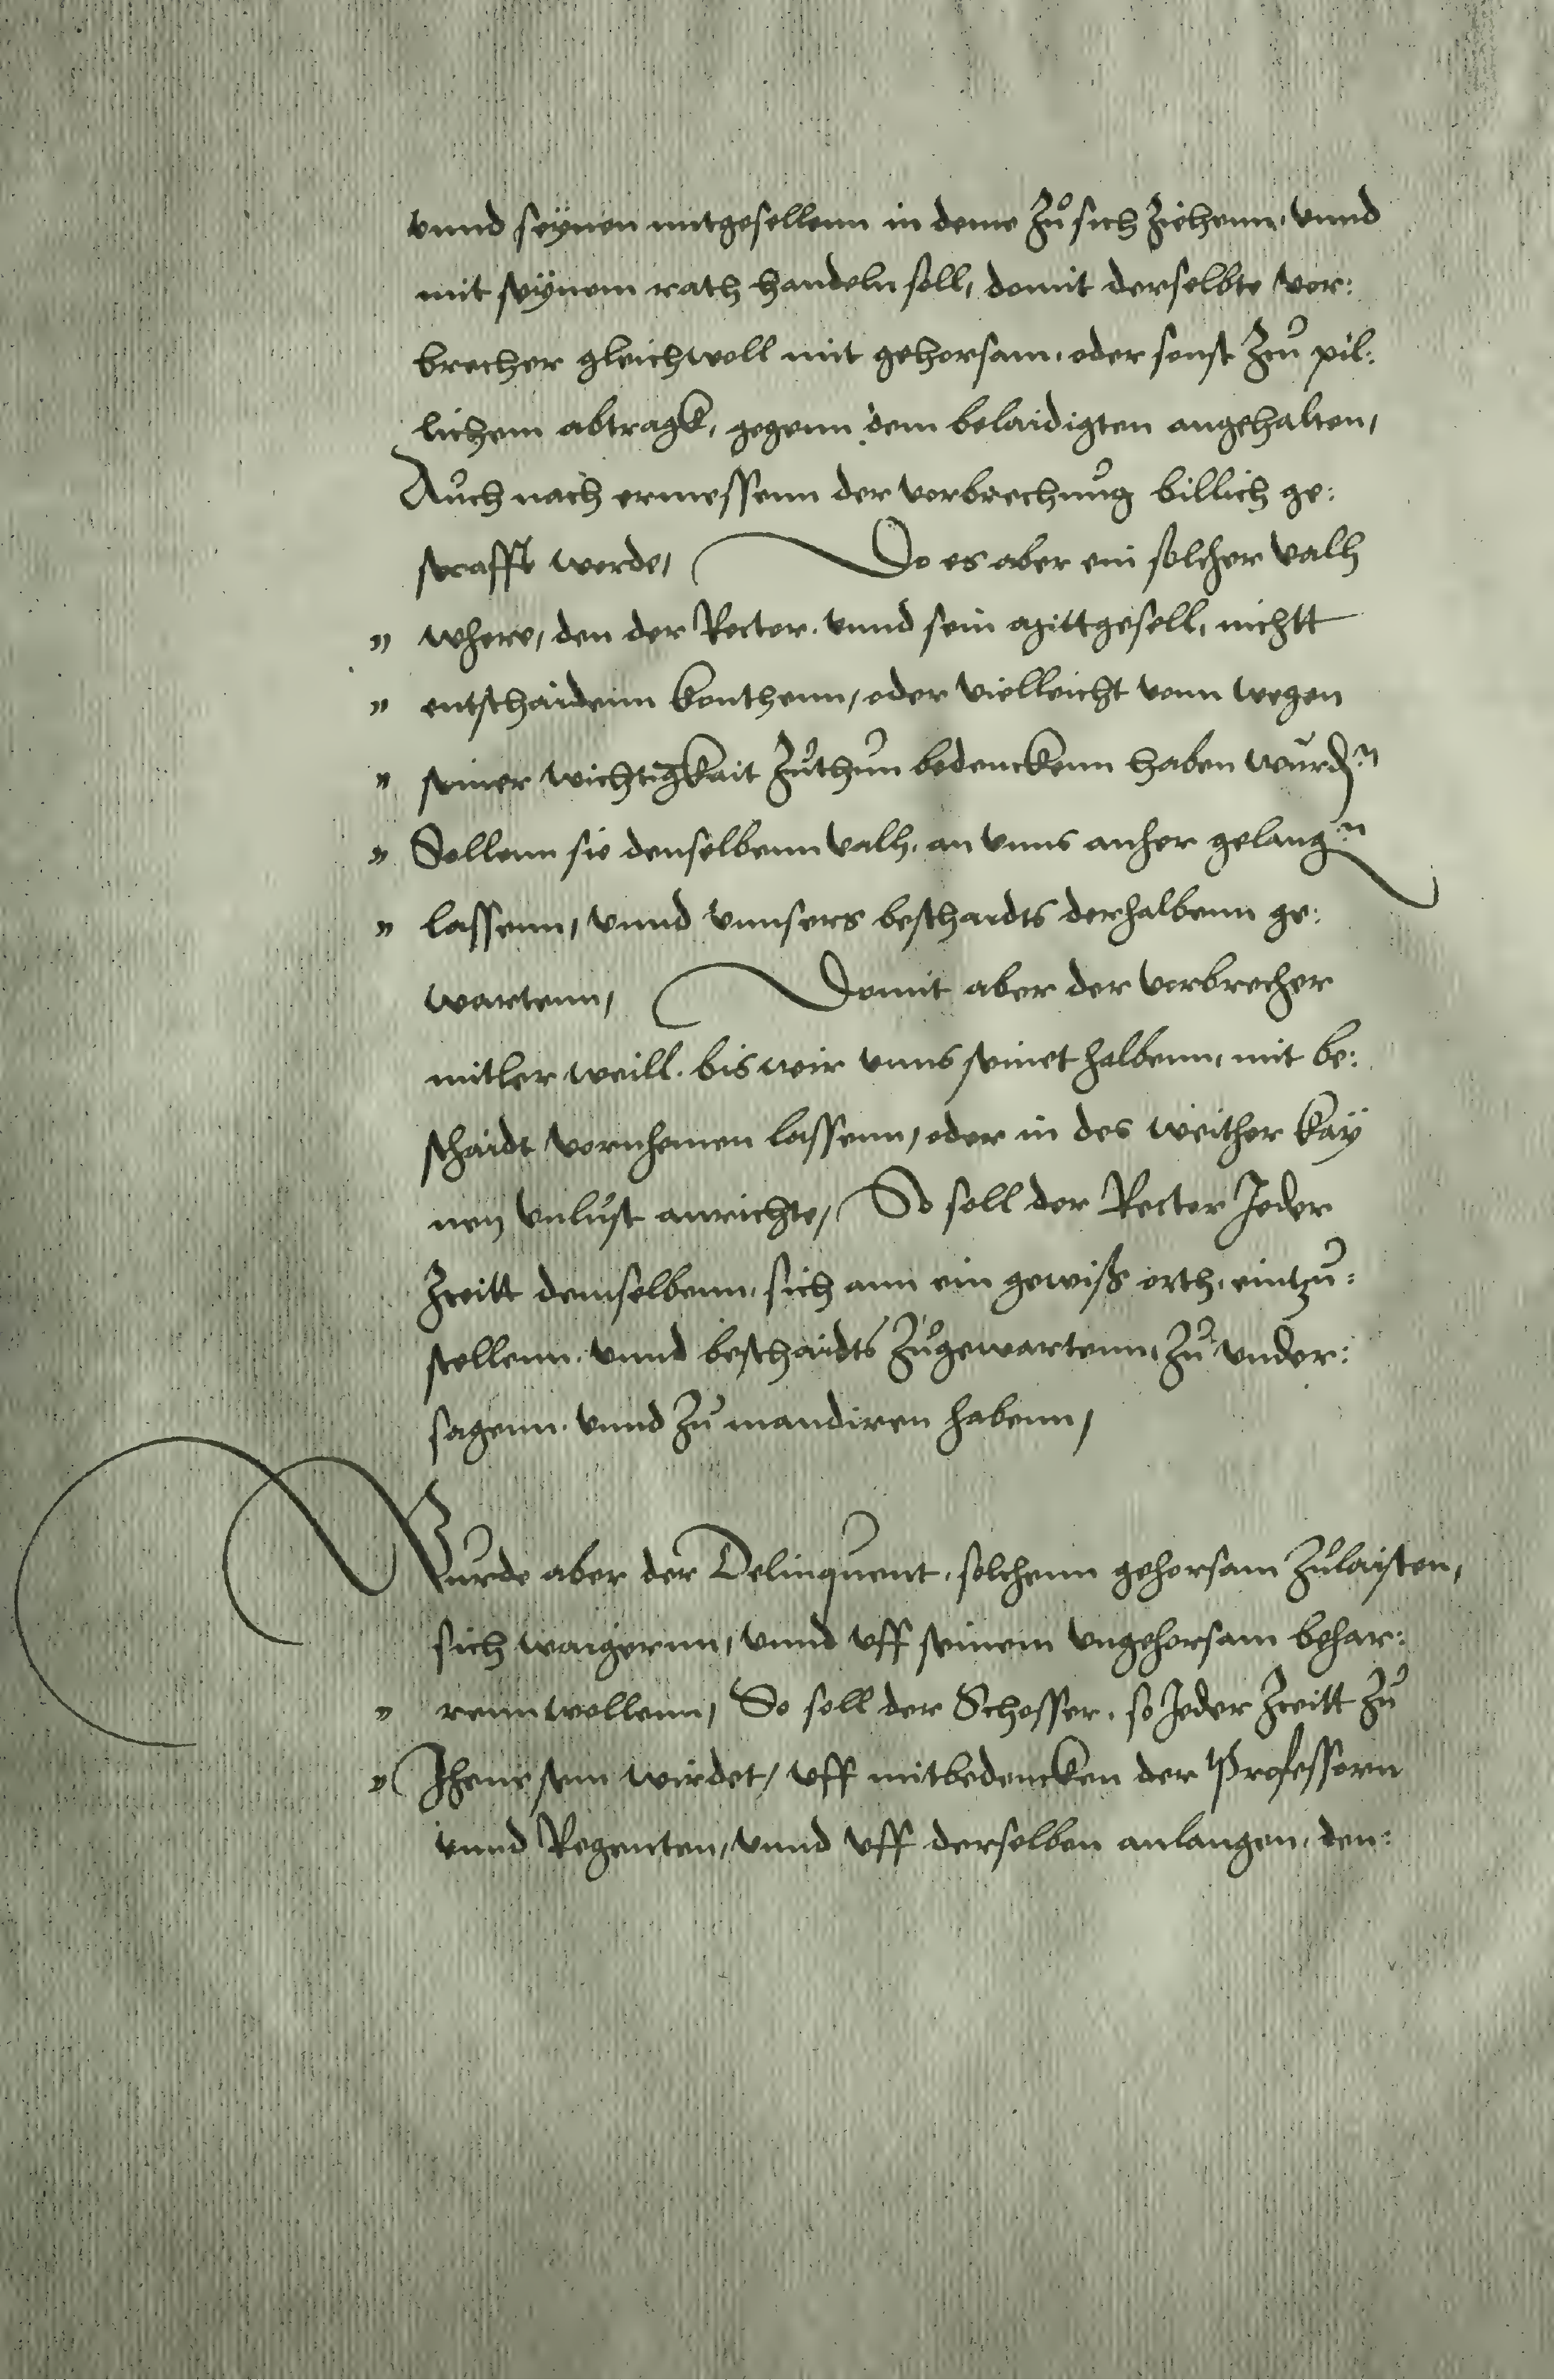 vnnd seÿnen mitgesellenn in deme Zu sich Ziehenn, vnnd
mit seÿnem rath handeln soll, domit derselbte vor:
brecher gleichwoll mit gehorsam, oder sonst Zcu pil:
lichem abtragk, gegenn dem belaidigten angehalten,
Auch nach ermessenn der vorbrechung billich ge:
strafft werde, Do es aber ein solcher valh
„ where, den der Rector, vnnd sein mittgesell, nichtt
„ entschaidenn konthenn, oder vielleicht vonn wegen
„ seiner wichtigkait Zuthun bedenckenn haben wurden
„ Sollenn sie denselbenn valh, an vnns anher gelangen
„ lassenn, vnnd vnnsers beschaidts derhalbenn ge:
wartenn, Domit aber der vorbrecher
mitler weill, bis wir vnns seinet halbenn, mit be:
schaidt vornhemen lassenn, oder in des weither kaÿ
nen vnlust anrichte, So soll der Rector Jeder
Zceitt demselbenn, sich ann ein gewiß orth, eintzu:
stellenn, vnnd beschaidts Zugewartenn, Zu vnder:
sagenn, vnnd Zu mandiren habenn,
Wurde aber der Delinquent, solchenn gehorsam Zulaisten,
sich waigernn, vnnd vff seinem vngehorsam behar:
„ renn wollenn, So soll der Schosser, so Jeder Zceitt Zu
„ Jhene sein wirdet, vff mitbedencken der Professorn
vnnd Regenten, vnnd vff derselben anlangen, den: